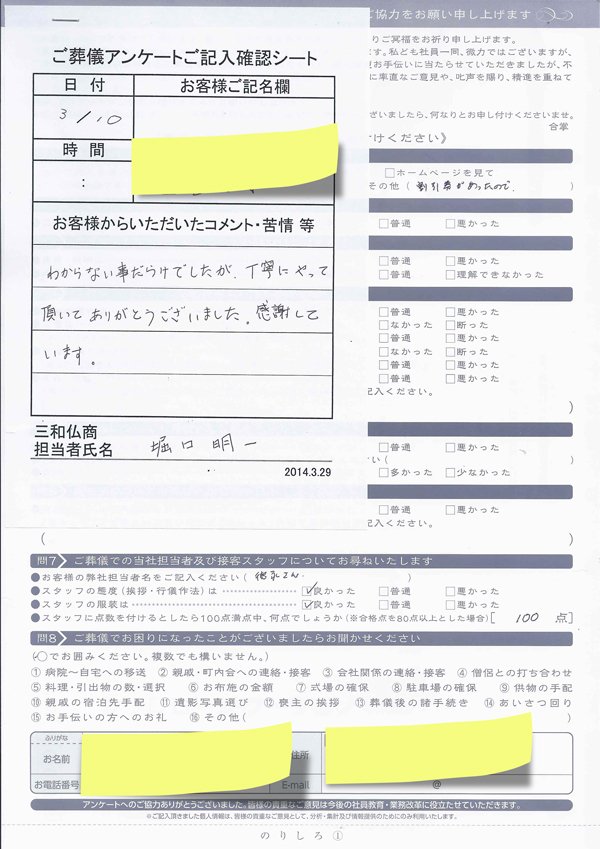 ご協力をお願い申し上げます
りご冥福をお祈り申し上げます。
す。私ども社員一同、微力ではございますが、
お手伝いに当たらせていただきましたが、不
に率直なご意見や、叱声を賜り、精進を重ねて
ざいましたら、何なりとお申し付けくださいませ。
合掌
付けください》
ご葬儀アンケートご記入確認シート
日付 お客様ご記名欄
3/10
時間
:
お客様からいただいたコメント・苦情 等
わからない事だらけでしたが、丁寧にやって
頂いてありがとうございました。感謝して
います。
三和仏商
担当者氏名 堀口明一
2014.3.29
□ホームページを見て
その他( 割引券があったので。 )
□普通 □悪かった
□普通 □悪かった
□普通 □理解できなかった
□普通 □悪かった
□なかった □断った
□普通 □悪かった
□なかった □断った
□普通 □悪かった
□普通 □悪かった
記入ください。
)
□普通 □悪かった
い(
□多かった □少なかった
□普通 □悪かった
記入ください。
( )
問7 ご葬儀での当社担当者及び接客スタッフについてお尋ねいたします
●お客様の弊社担当者名をご記入ください( )
●スタッフの態度(挨拶・行儀作法)は ☑良かった □普通 □悪かった
●スタッフの服装は ☑良かった □普通 □悪かった
●スタッフに点数を付けるとしたら100点満点中、何点でしょうか(※合格点を80点以上とした場合)[ 100 点]
問8 ご葬儀でお困りになったことがございましたらお聞かせください
(○でお囲みください。複数でも構いません。)
①病院〜自宅への移送 ②親戚・町内会への連絡・接客 ③会社関係の連絡・接客 ④僧侶との打ち合わせ
⑤料理・引出物の数・選択 ⑥お布施の金額 ⑦式場の確保 ⑧駐車場の確保 ⑨供物の手配
⑩親戚の宿泊先手配 ⑪遺影写真選び ⑫喪主の挨拶 ⑬葬儀後の諸手続き ⑭あいさつ回り
⑮お手伝いの方へのお礼 ⑯その他( )
ふりがな
お名前 住所
お電話番号 E-mail @
アンケートへのご協力ありがとうございました。皆様の貴重なご意見は今後の社員教育・業務改革に役立たせていただきます。
※ご記入頂きました個人情報は、皆様の貴重なご意見として、分析・集計及び情報提供のためにのみ利用いたします。
のりしろ①